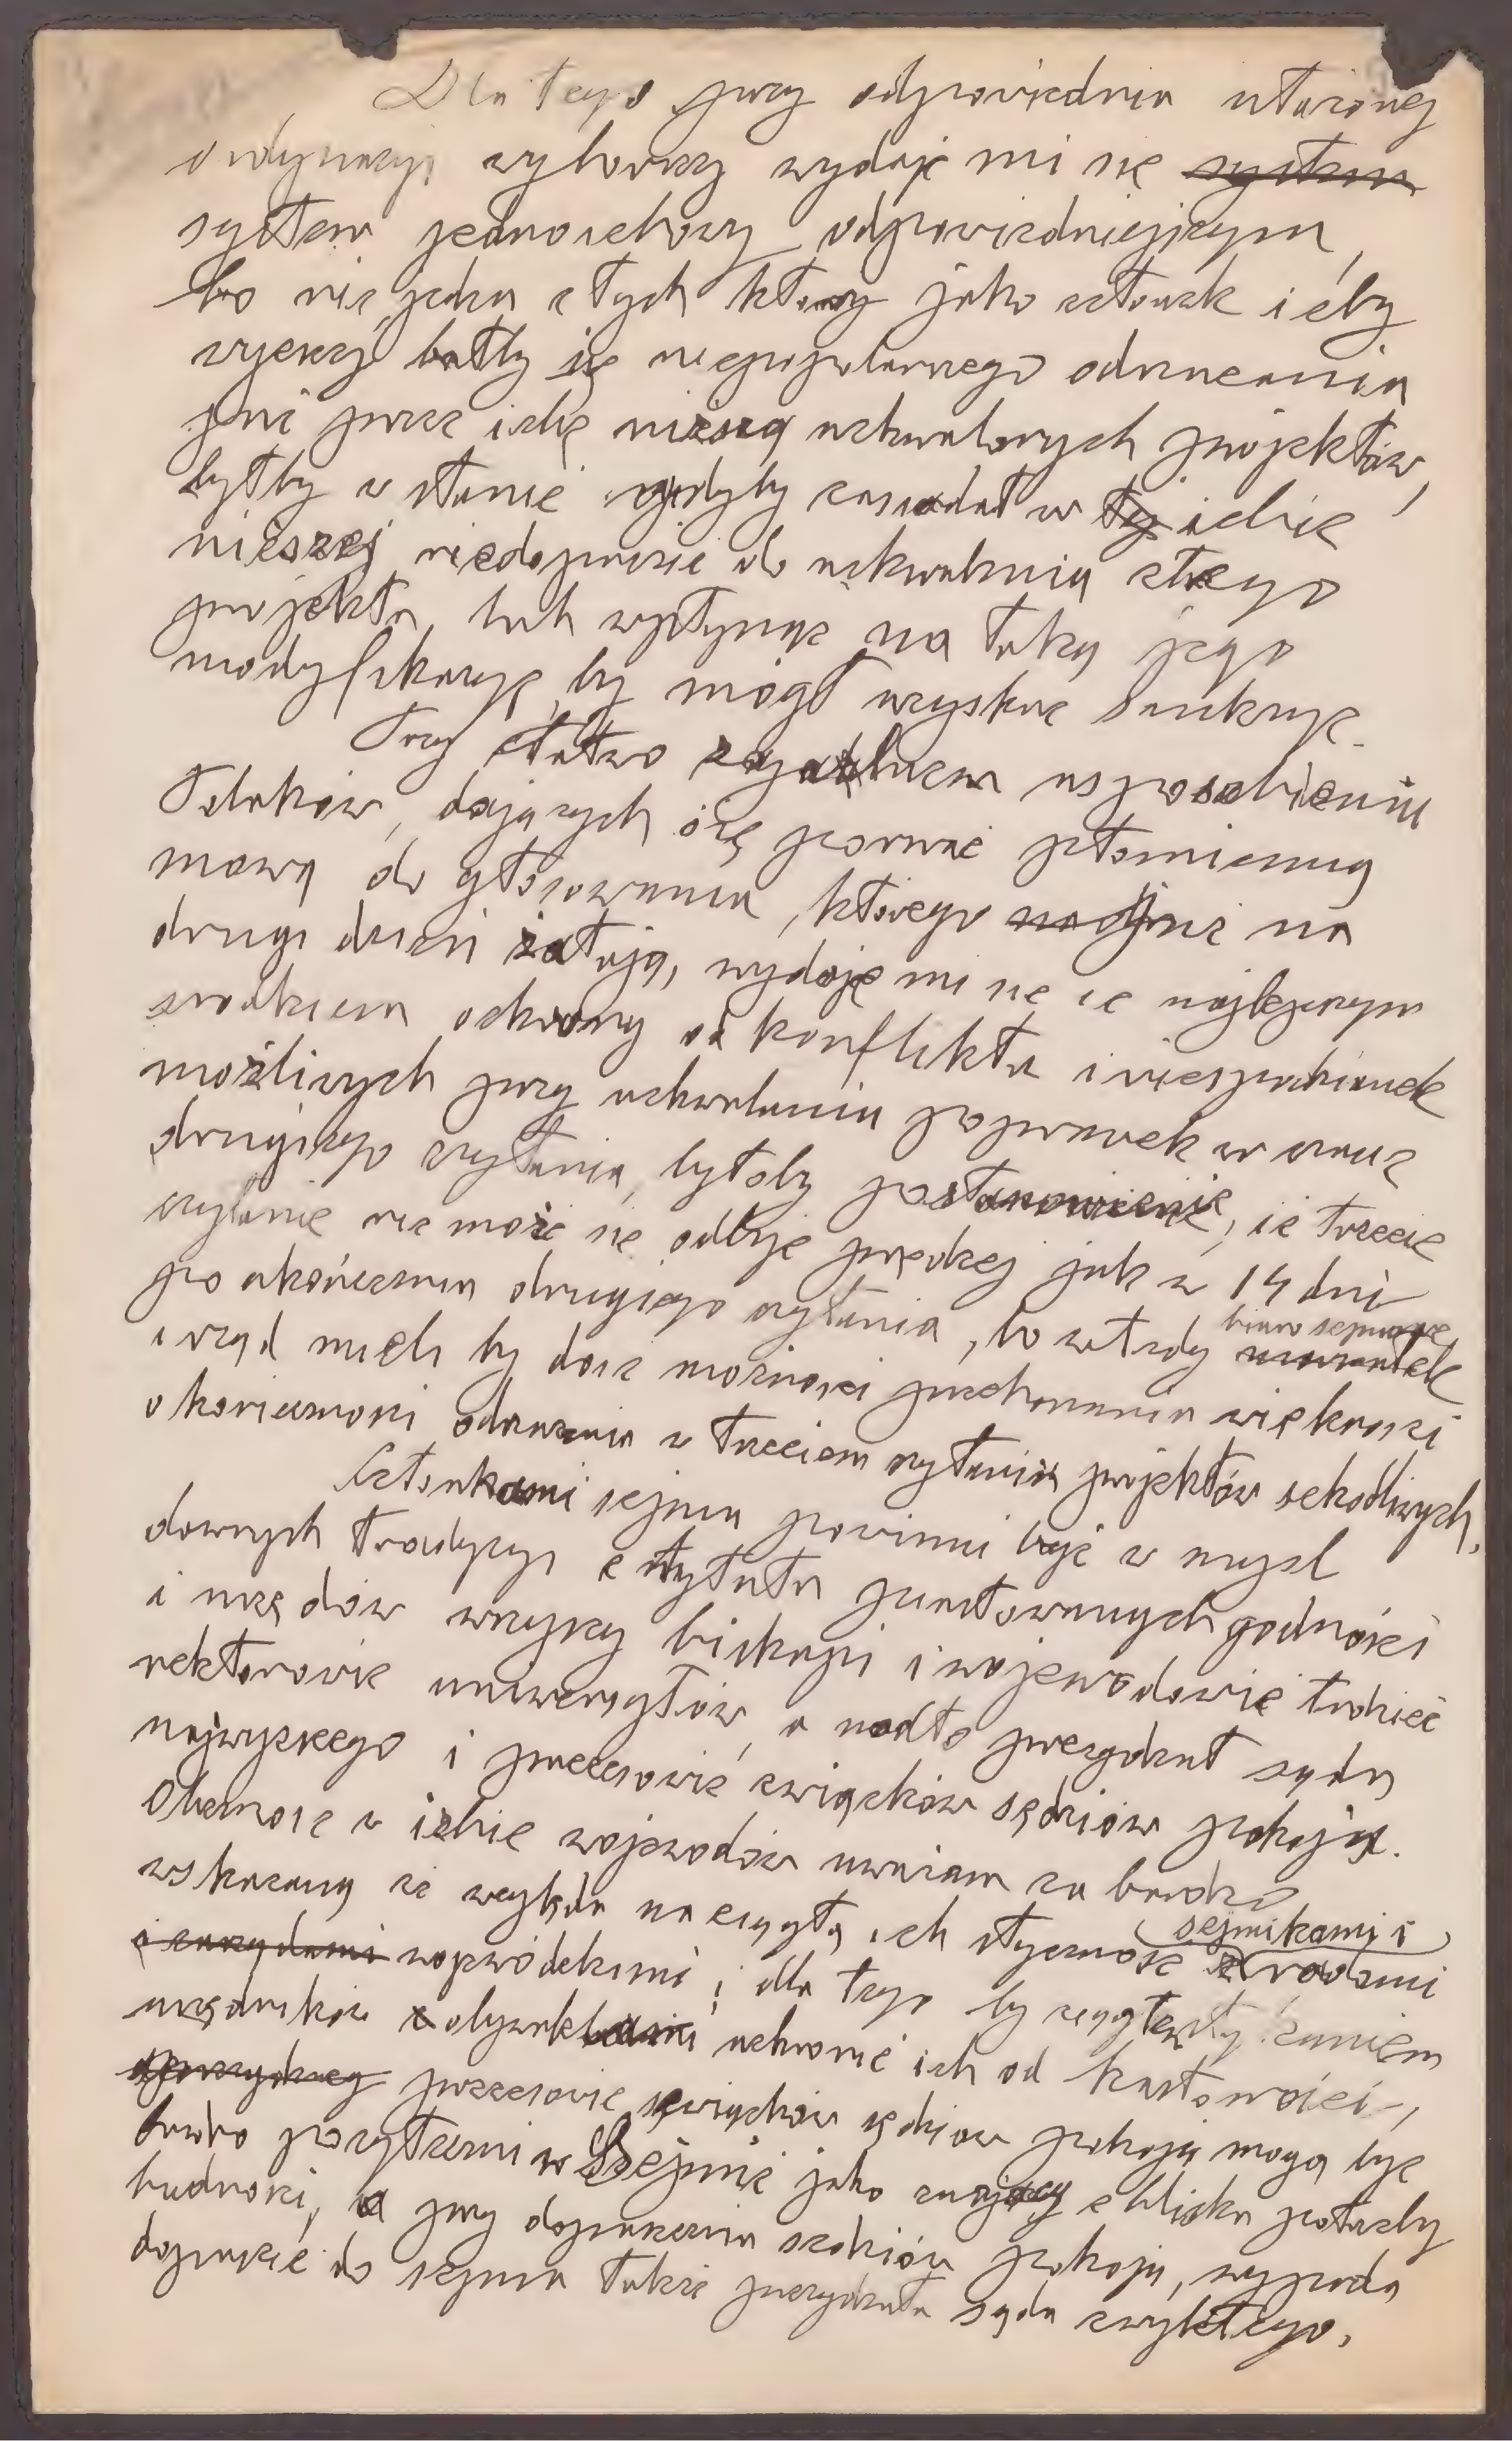 Dla tego przy odpowiednia ułożonej
ordynacyi wyborczy wydaje mi się system
system jednoizbowy odpowiedniejszym,
bo nie jeden z tych który jako członek izby
wyższej bałby się niepopularnego odrzucania
już przez izbę niższą uchwalonych projektów,
byłby w stanie gdyby zasiadał w tej izbie
niższej niedopuścić do uchwalenia złego
projektu lub wpłynąć na taką jego
modyfikacyę, by mógł uzyskać sankcyę.
Przy łatwo zapalnem usposobieniu
Polaków, dających się porwać płomienną
mową do głosowania, którego na
drugi dzień żałują, wydaje mi się że najlepszym
środkiem ochrony od konfliktu i niespodzianek
możliwych przy uchwalaniu poprawek w czasie
drugiego czytania, byłoby postanowienie, że trzecie
czytanie nie może się odbyć prędzej jak w 14 dni
po ukończeniu drugiego czytania, bo wtedy biuro sejmowe
i rząd mieli by dość możności przekonania większości
o konieczności odrzucenia w trzeciem czytaniu projektów szkodliwych.
Członkami sejmu powinni być w myśl
dawnych tradycyi z tytułu piastowanych godności
i urzędów wszyscy biskupi i wojewodowie tudzież
rektorowie uniwersytetów, a nadto prezydent sądu
najwyższego i prezesowie związków sędziów pokoju.
Obecność w izbie wojewodów uważam za bardzo
wskazaną ze względu na ciągłą ich styczność z sejmikami i radami
i zarządami wojewódzkimi i dla tego by ciągłem
urzędników z obywatelami uchronić ich od kastowości,
prezesowie związków sędziów pokoju mogą być
bardzo pożyteczni w Sejmie jako znający z bliska potrzeby
ludności, a przy dopuszczeniu sędziów pokoju, wypada
dopuścić do sejmu także prezydenta sądu zwykłego,